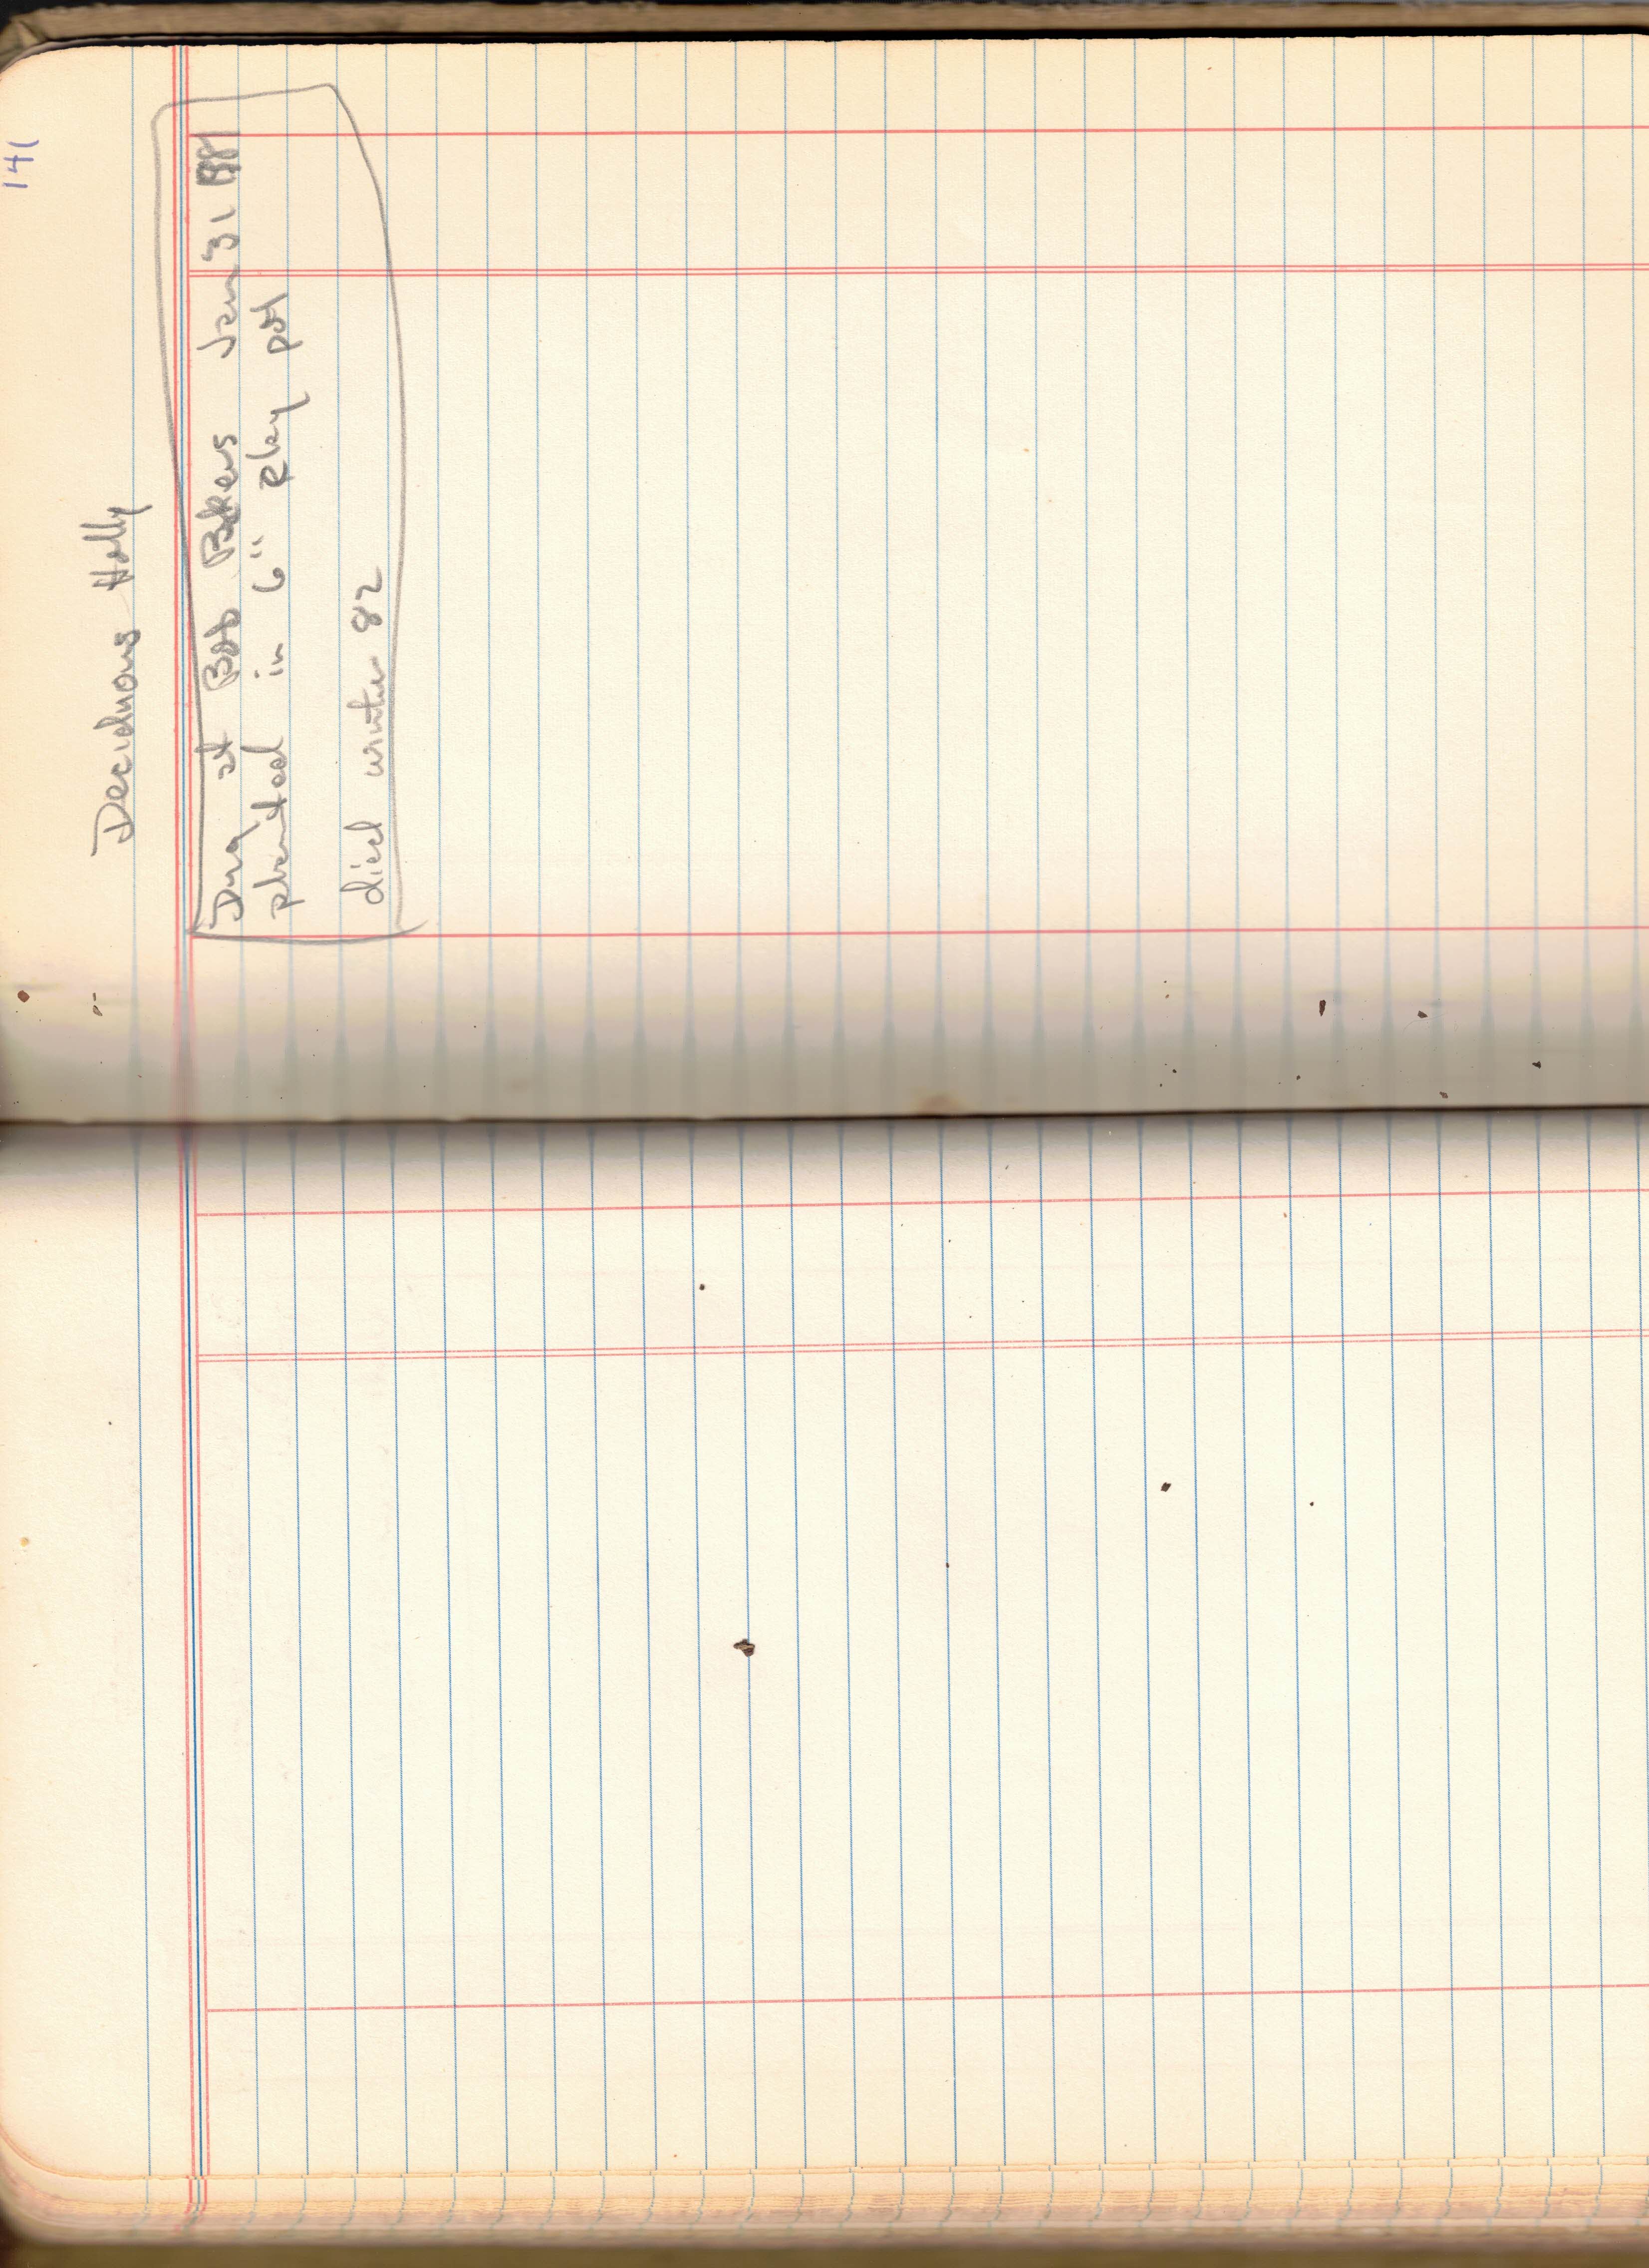 141
Deciduous Holly
Dug at Bob Bakers Jan 31 1981
planted in 6" clay pot
died winter 82